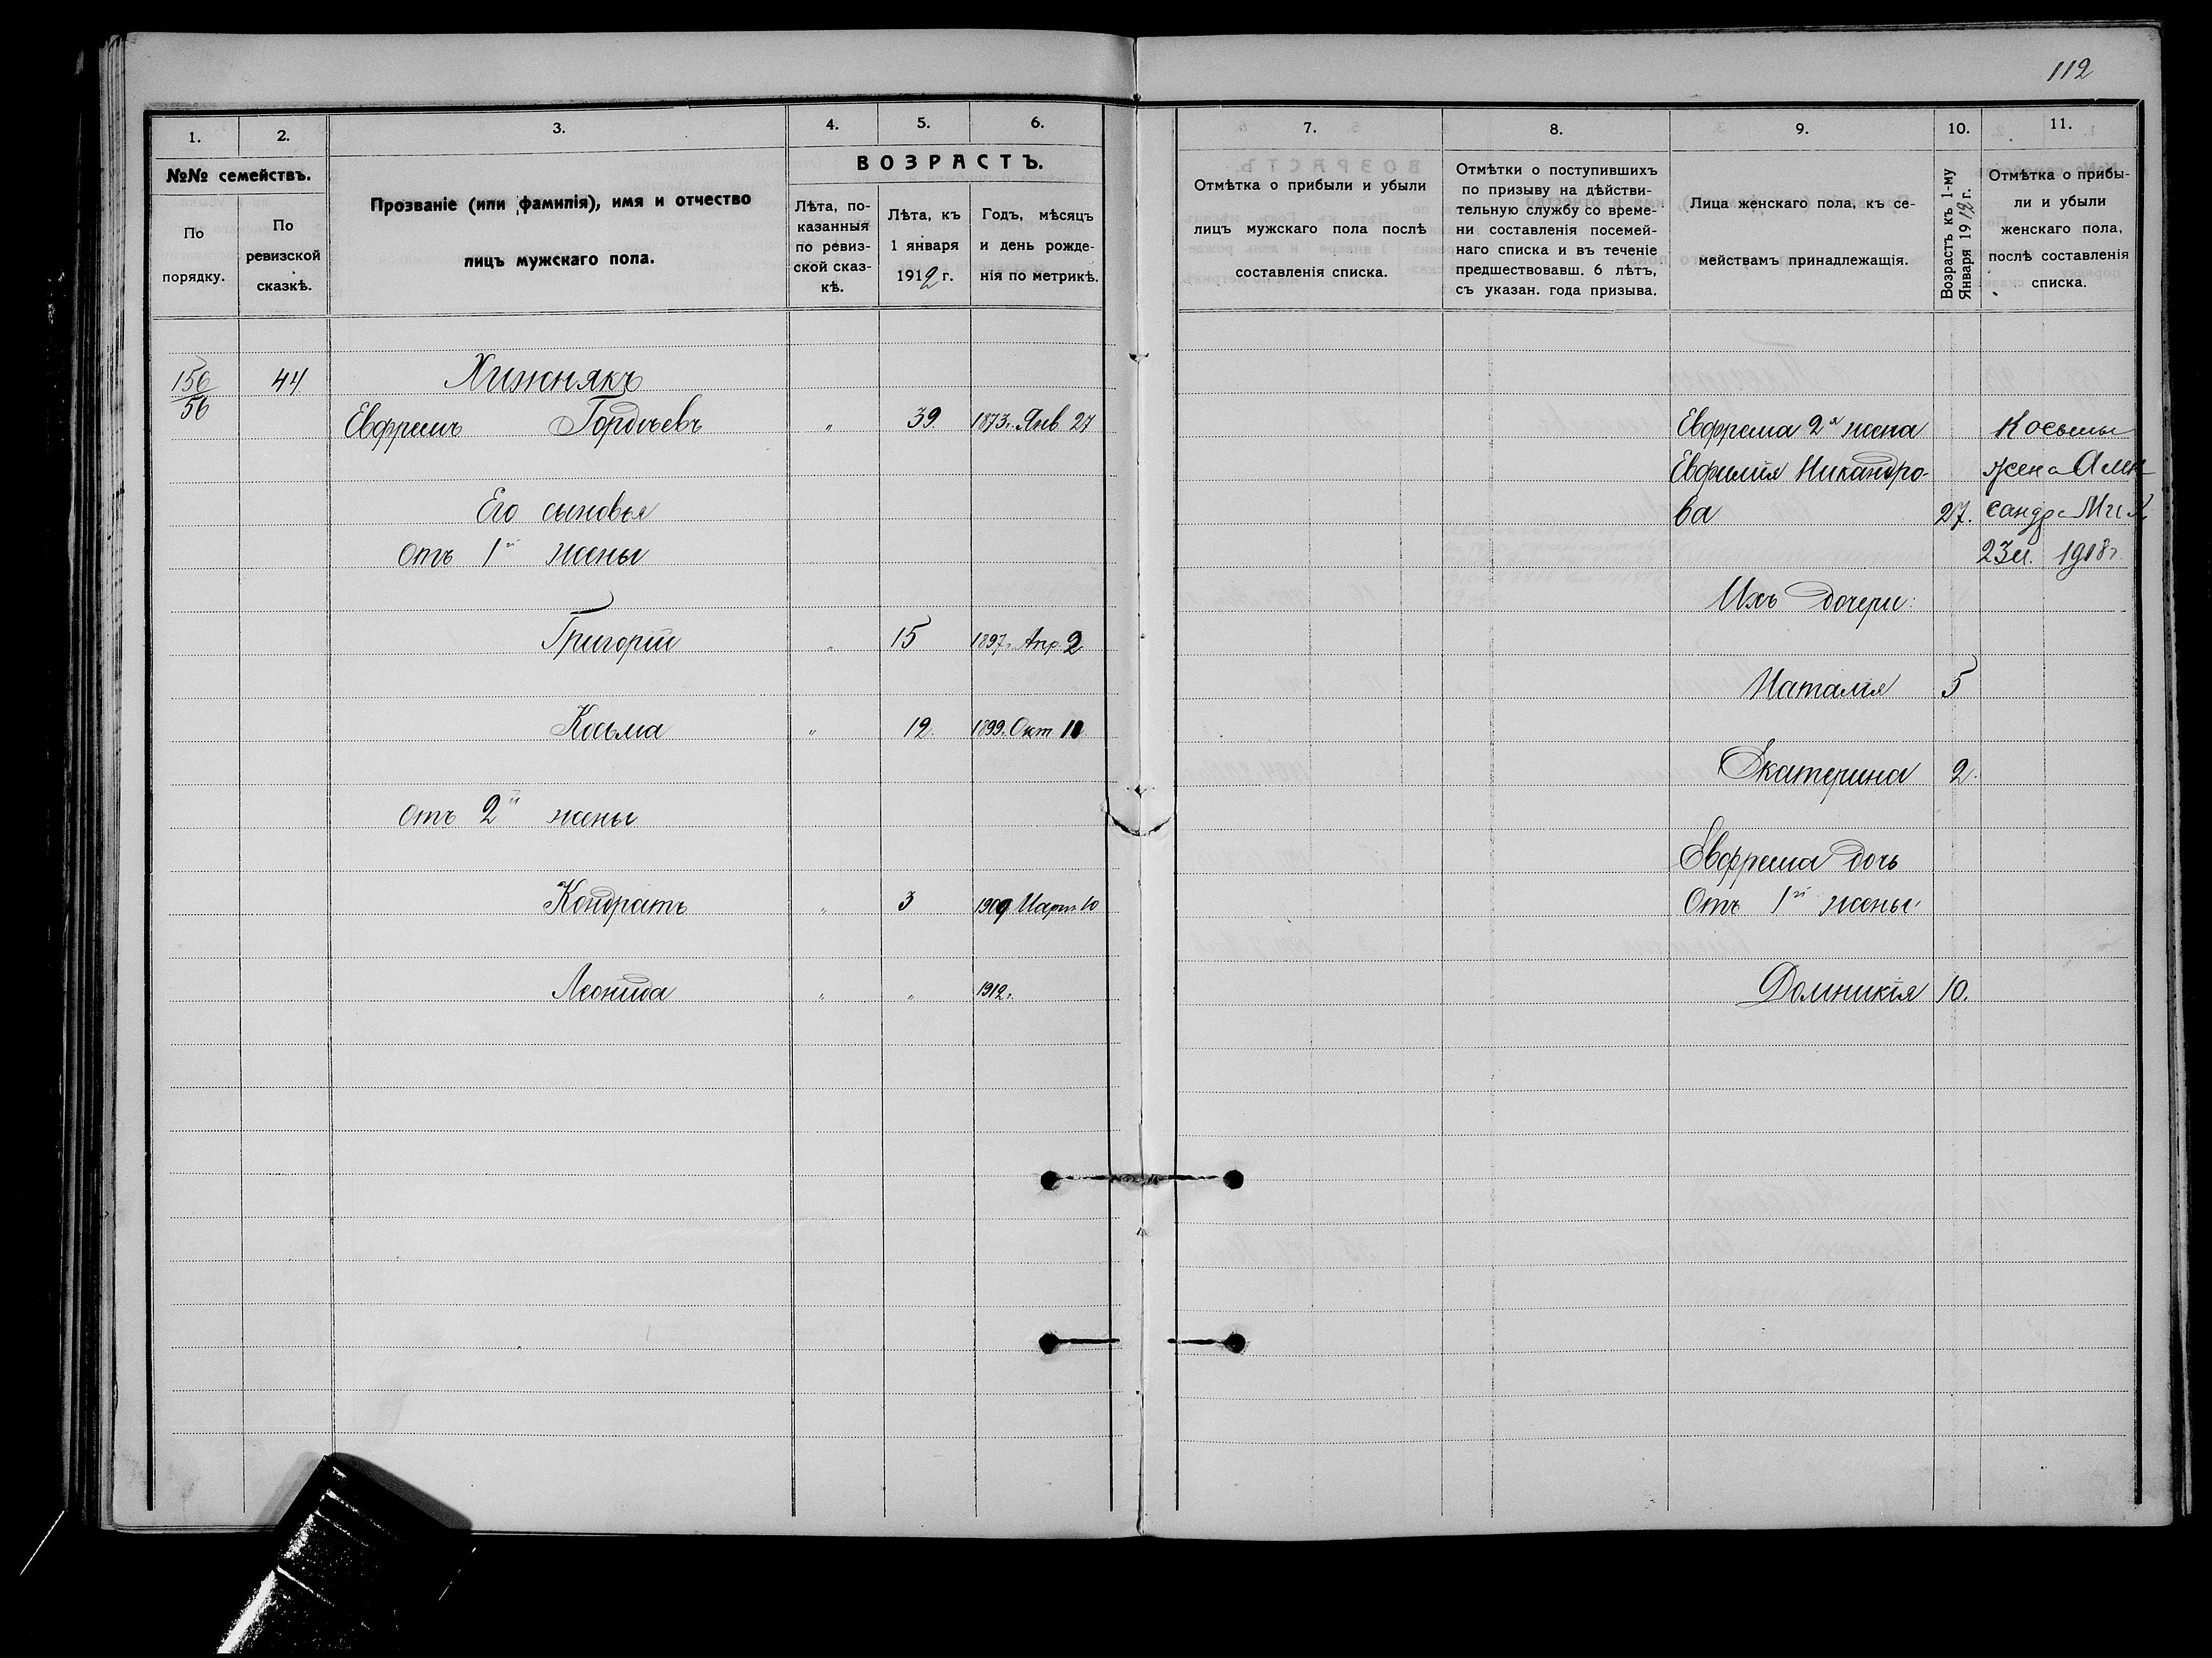 112
1.
2.
3.
4.
5.
6.
№№ семействъ.
По порядку.
По ревизской сказкѣ.
Прозваніе (или фамилія), имя и отчество
лицъ мужскаго пола.
ВОЗРАСТЪ.
Лѣта, по-
казанныя
по ревиз-
ской сказ-
кѣ.
Лѣта, къ
1 января
1912 г.
Годъ, мѣсяцъ
и день рожде-
нія по метрикѣ.
156
56
44
Хижнякъ
Евфремъ Гордѣевъ " 39 1873. Янв 27
Его сыновья
отъ 1й жены
Григорій " 15 1897. Апр. 2
Косьма " 12. 1899. Окт 11
отъ 2й жены
Кондратъ " 3 1909 Март 10
Леонида " " 1912.
7.
8.
9.
10.
11.
Отмѣтка о прибыли и убыли
лицъ мужскаго пола послѣ
составленія списка.
Отмѣтки о поступившихъ
по призыву на дѣйстви-
тельную службу со време-
ни составленія посемей-
наго списка и въ теченіе
предшествовавш. 6 лѣтъ,
съ указан. года призыва.
Лица женскаго пола, къ се-
мействамъ принадлежащія.
Возрастъ къ 1-му
Января 1912 г.
Отмѣтка о прибы-
ли и убыли
женскаго пола,
послѣ составленія
списка.
Евфрема 2я жена
Евфимія Никандро-
ва 27.
Ихъ дочери:
Наталія 5
Екатерина 2.
Евфрема дочь
Отъ 1й жены
Домникія 10.
Косьмы
жена Алек
сандра Мих.
1918г.